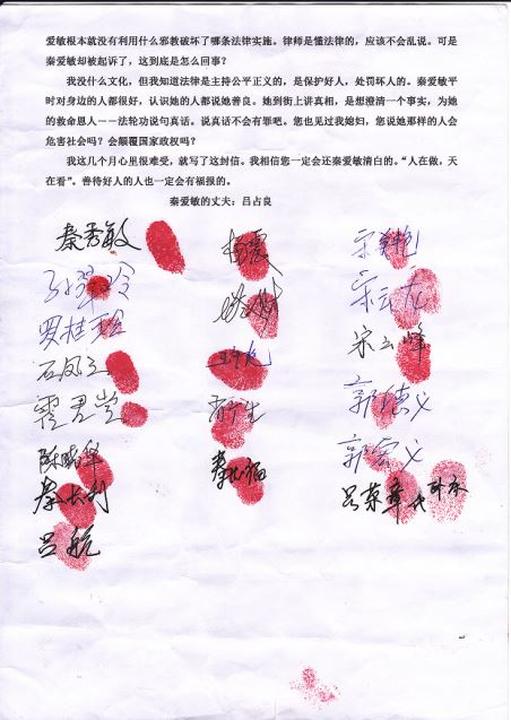 爱敏根本就没有利用什么邪教破坏了哪条法律实施。律师是懂法律的，应该不会乱说。可是
秦爱敏却被起诉了，这到底是怎么回事？
我没什么文化，但我知道法律是主持公平正义的，是保护好人，处罚坏人的。秦爱敏平
时对身边的人都很好，认识她的人都说她善良。她到街上讲真相，是想澄清一个事实，为她
的救命恩人－－法轮功说句真话。说真话不会有罪吧。您也见过我媳妇，您说她那样的人会
危害社会吗？会颠覆国家政权吗？
我这几个月心里很难受，就写了这封信。我相信您一定会还秦爱敏清白的。“人在做，天
在看”。善待好人的人也一定会有福报的。
秦爱敏的丈夫：吕占良
秦秀敏
杨震
宋云龙
罗桂玲
宋云峰
石凤云
郭德义
霍君堂
陈晓华
秦长利
吕荣章代
吕航